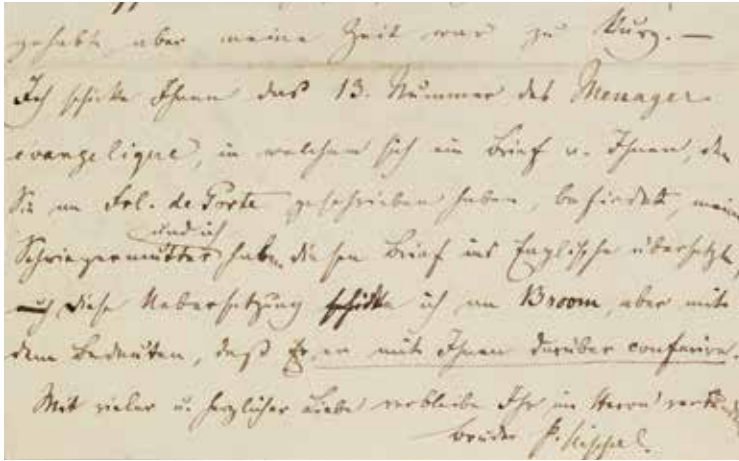 gehabt, aber meine Zeit war zu kurz. —
Ich schicke Ihnen das 13. Nummer des Menager
evangelique, in welchem sich ein Brief v. Ihnen, den
Sie an Frl. de Porte geschrieben haben, befindet, meine
und ich
Schwiegermutter haben diesen Brief ins Englische übersetzt,
diese Uebersetzung schickte ich an Broom, aber mit
dem Bedeuten, daß er mit Ihnen darüber conferire.
Mit vieler u. herzlicher Liebe verbleibe Ihr im Herrn
bruder P.